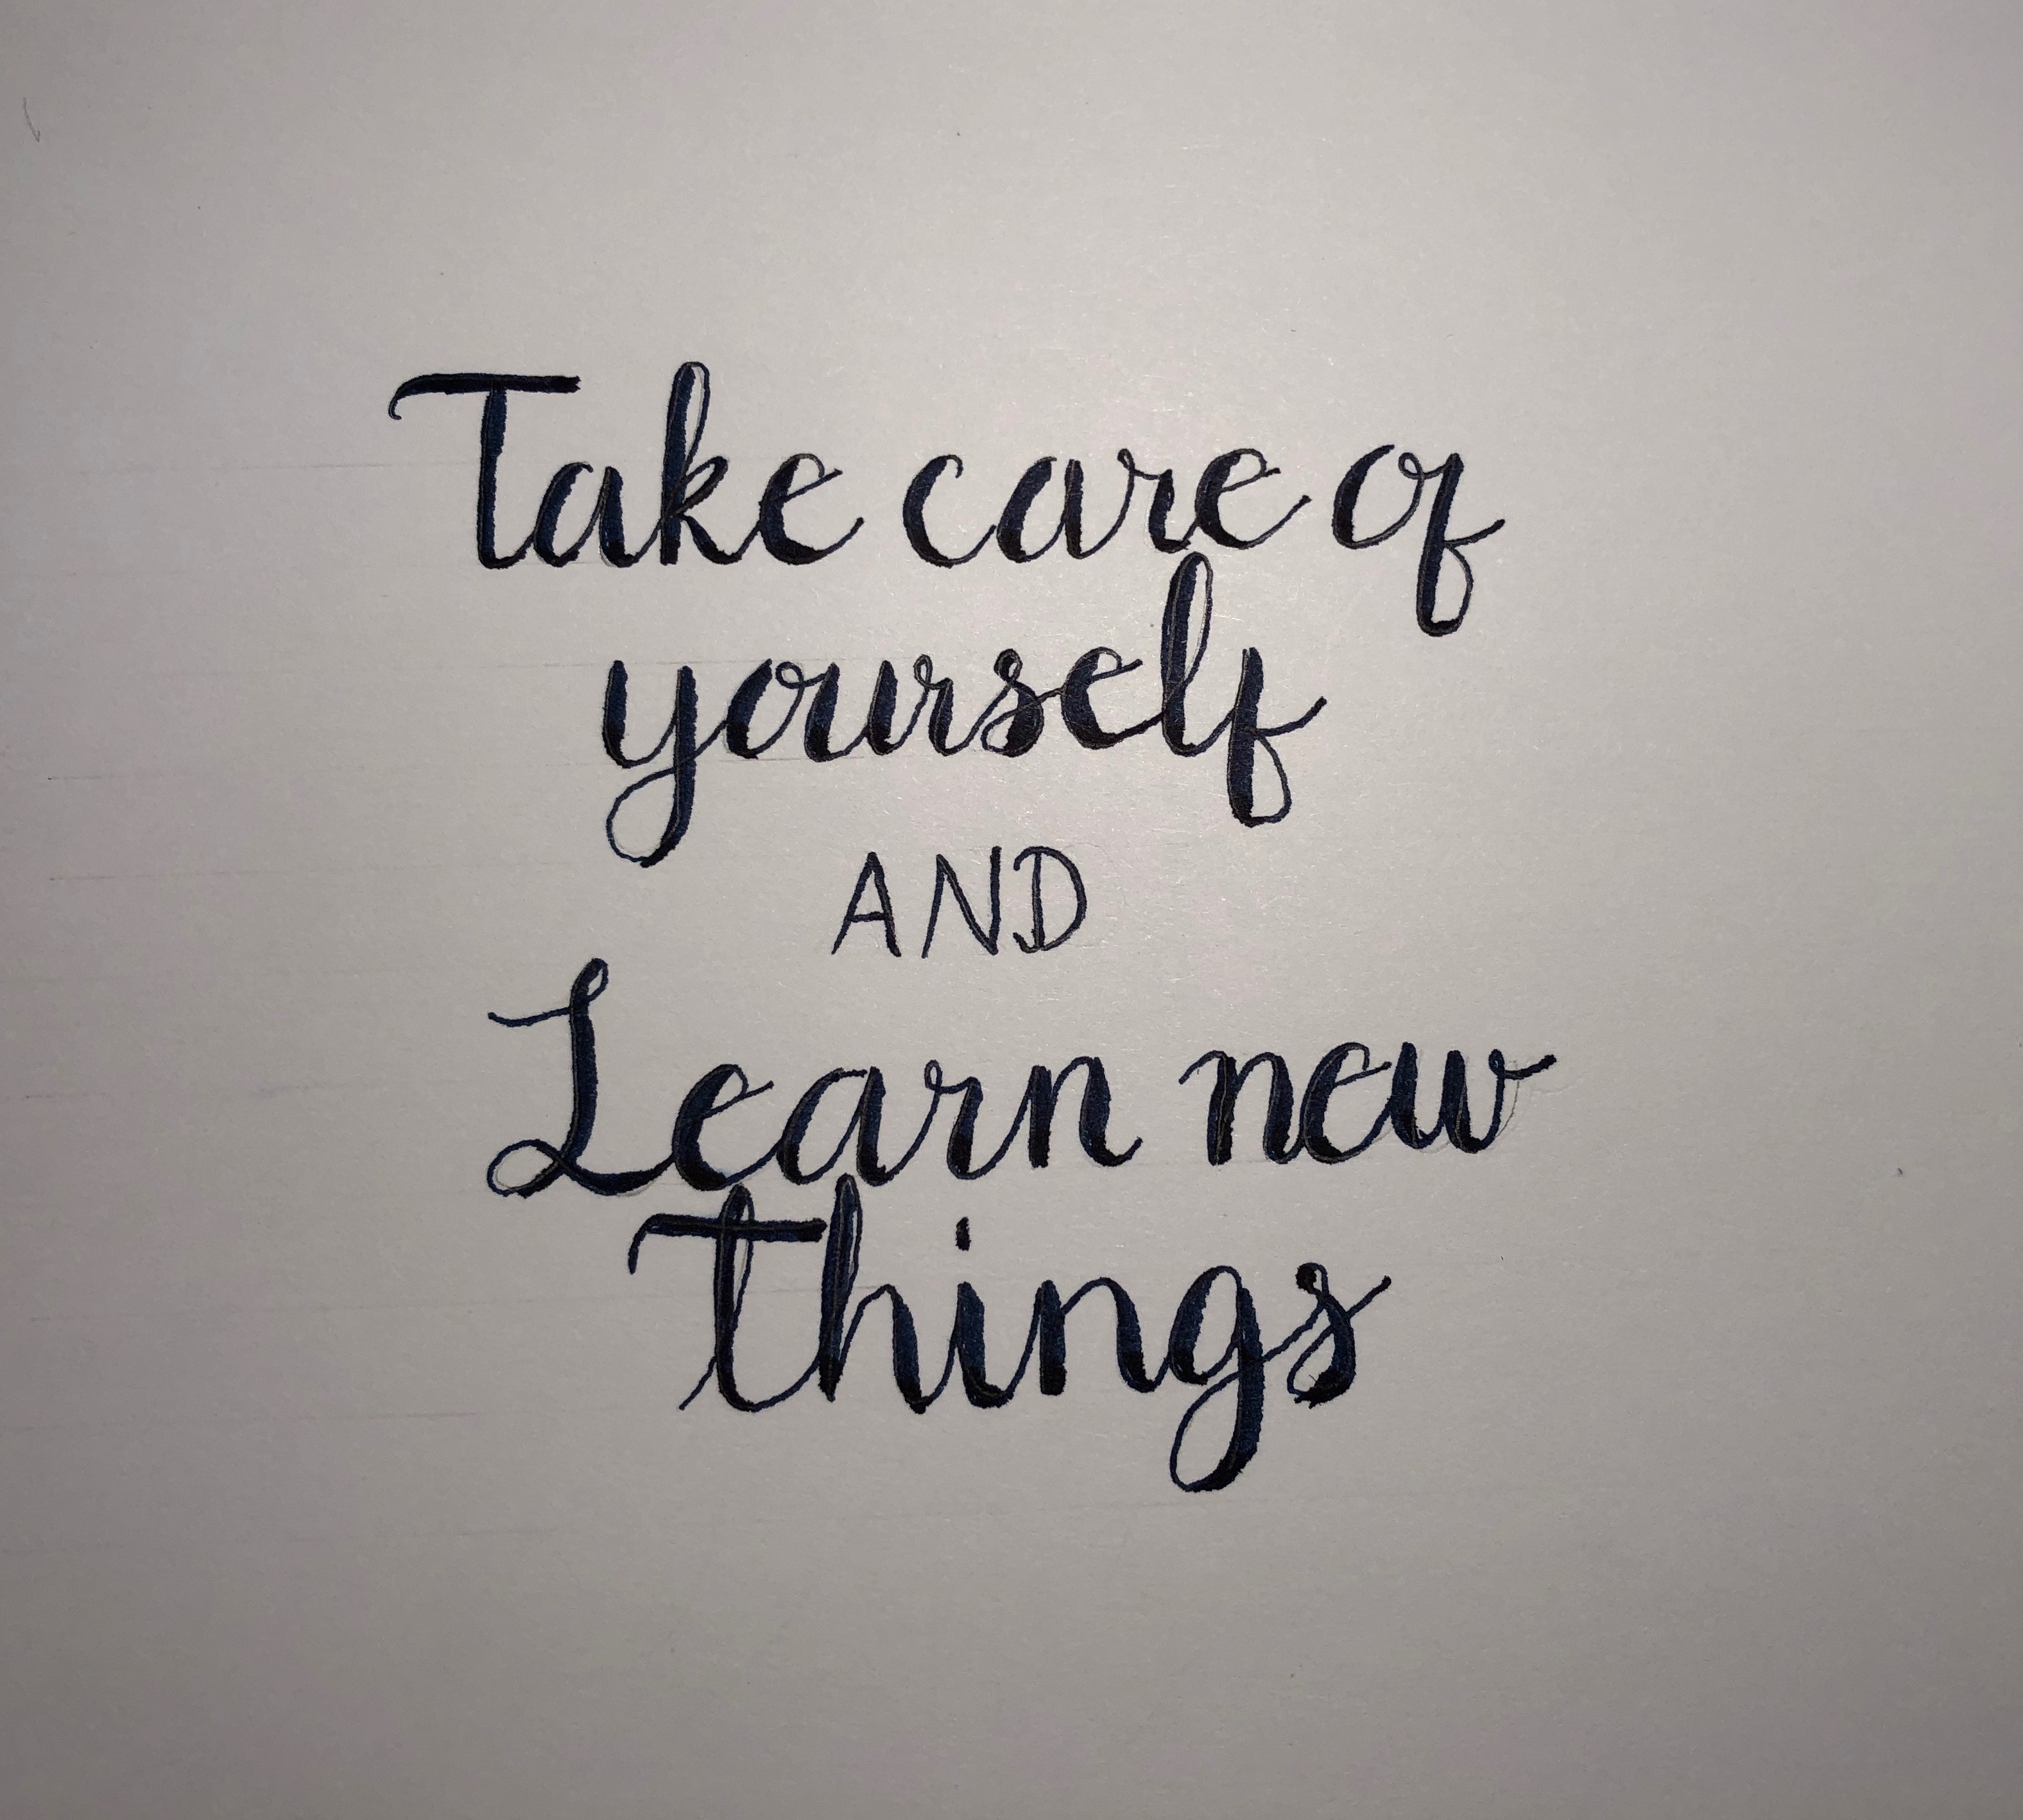 Take care of
yourself
AND
Learn new
things